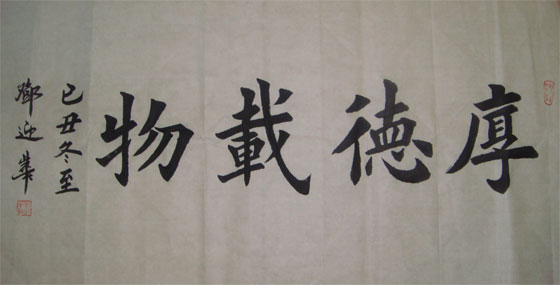 厚德載物
己丑冬至
鄧迎華